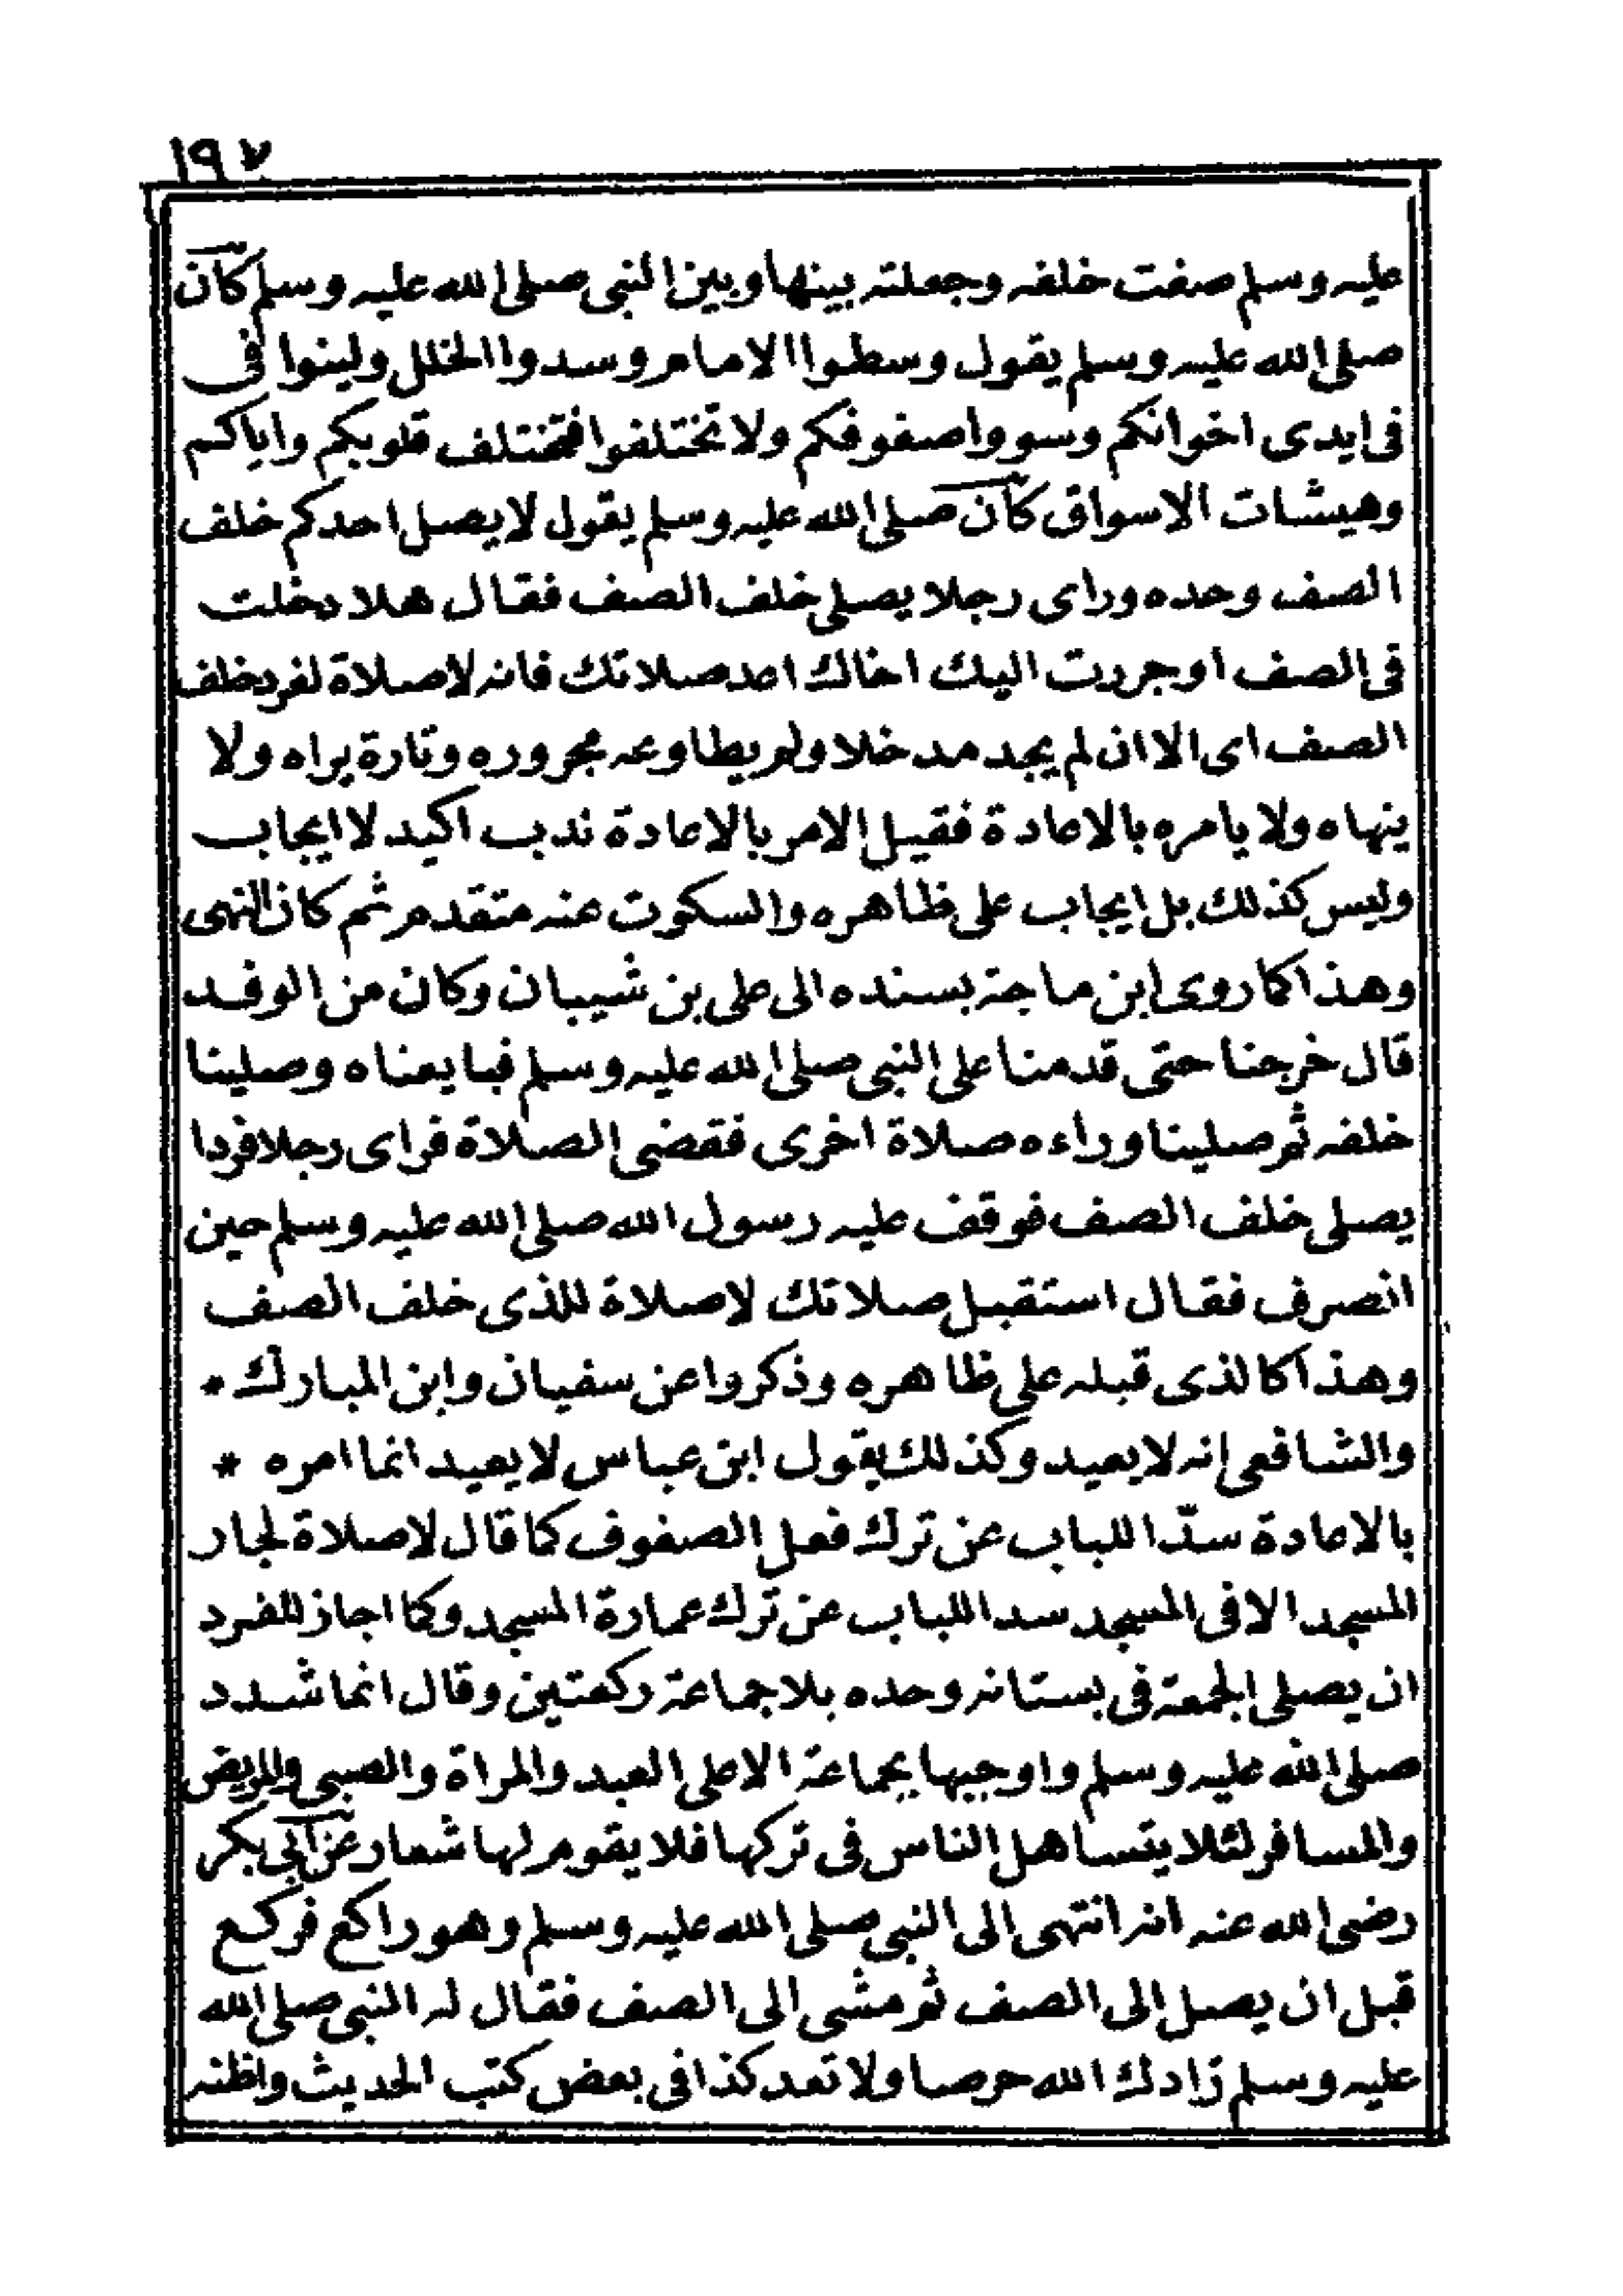 ١٩٧
عليه وسلم صفت خلفه وجعلته بينها وبين النبى صلى الله عليه وسلم كان
صلى الله عليه وسلم يقول وسطوا الامام وسدوا الخلل ولينوا فى
فى ايدى اخوانكم وسووا صفوفكم ولا تختلفوا فتختلف قلوبكم واياكم
وهيشات الاسواق كان صلى الله عليه وسلم يقول لا يصل احدكم خلف
الصف وحده وراى رجلا يصلى خلف الصف فقال هلا دخلت
فى الصف او جررت اليك اخاك اعد صلاتك فانه لا صلاة لفرد خلف
الصف اى الا ان لم يجد مدخلا ولم يطاوعه مجروره وتارة يراه ولا
ينهاه ولا يامره بالاعادة فقيل الامر بالاعادة ندب اكيد لا ايجاب
وليس كذلك بل ايجاب على ظاهره والسكوت عنه متقدم ثم كان النهى
وهذا كما روى ابن ماجة بسنده الى على بن شيبان وكان من الوفد
قال خرجنا حتى قدمنا على النبى صلى الله عليه وسلم فبايعناه وصلينا
خلفه ثم صلينا وراءه صلاة اخرى فقضى الصلاة فراى رجلا فردا
يصلى خلف الصف فوقف عليه رسول الله صلى الله عليه وسلم حين
انصرف فقال استقبل صلاتك لا صلاة للذى خلف الصف
وهذا كالذى قبله على ظاهره وذكروا عن سفيان وابن المبارك *
والشافعى انه لا يعيد وكذلك يقول ابن عباس لا يعيد انما امره *
بالاعادة سدّا للباب عن ترك فعل الصفوف كما قال لا صلاة لجار
المسجد الا فى المسجد سدا للباب عن ترك عمارة المسجد وكما اجاز للفرد
ان يصلى الجمعة فى بستانه وحده بلا جماعة ركعتين وقال انما شدد
صلى الله عليه وسلم واوجبها بجماعة الا على العبد والمراة والصبى والمريض
والمسافر لئلا يتساهل الناس فى تركها فلا يقوم لها شعار عن ابى بكر
رضى الله عنه انه انتهى الى النبى صلى الله عليه وسلم وهو راكع فركع
قبل ان يصل الى الصف ثم مشى الى الصف فقال له النبى صلى الله
عليه وسلم زادك الله حرصا ولا تعد كذا فى بعض كتب الحديث واظنه